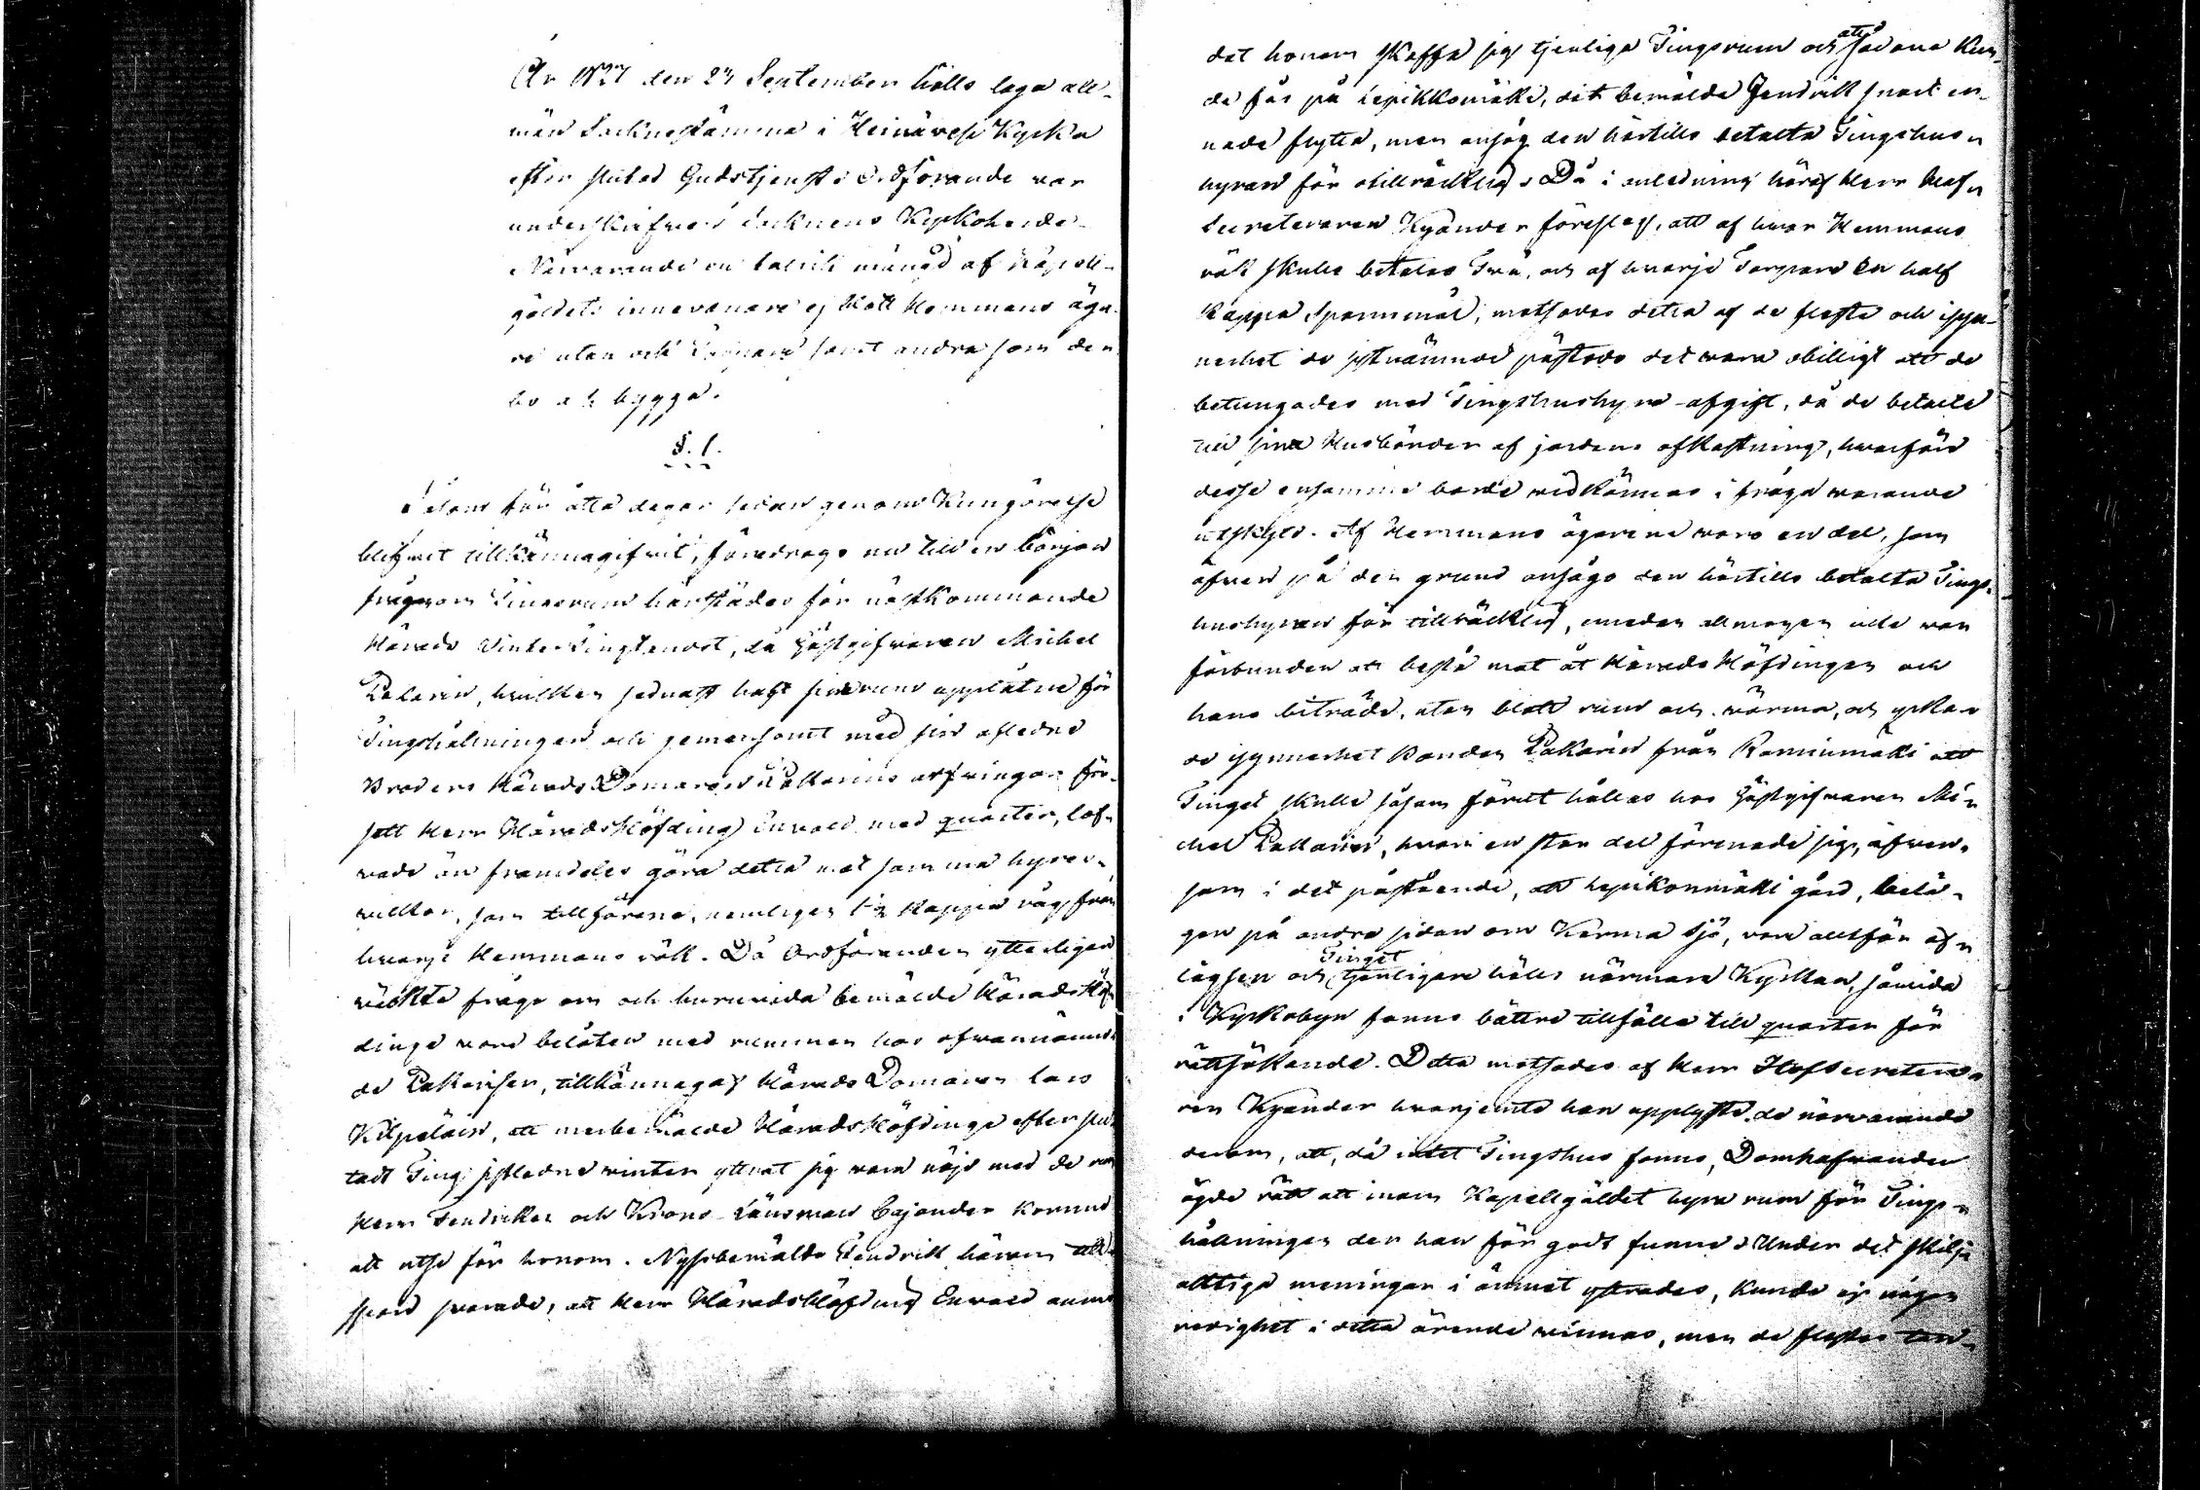 År 1827 den 23 September hölls laga all-
män Socknestämma i Heinävesi Kyrka
efter slutad Gudstjenst. Ordförande var
underskrifven Socknens Kyrkoherde.
Närvarande en talrik mängd af Kapell-
gäldets innevånare ej blott Hemmans äga-
re utan och Torpare samt andra som der
bo och bygga.
§. 1.
Såsom för åtta dagar sedan genom Kungörelse
blifvit tillkännagifvit, föredrogs nu till en början
frågan om Tingsrum härstädes för nästkommande
Härads Vinter Tingtandet, då Gästgifvaren Michel
Pakarin, hvilken sednast haft sina rum upplåtne för
Tingshållningen och gemensamt med sin afledne
Broders Härads Domaren Pakarins arfvingar för-
sett Herr Häradshöfding Enwald med quarter, lof-
vade än framdeles göra detta mot samma hyres-
vilkor, som tillförene, nemligen 1½ Kappa råg från
hvarje Hemmans rök. Då Ordföranden ytterligare
väckte fråga om och huruvida bemälde Häradshöf-
dinge vore belåten med rummen hos ofvannämn-
de Pakarisen, tillkännagaf Härads Domaren Lars
Kilpeläin, att merbemälde Häradshöfdinge efter slu-
tadt Ting sistledne vinter yttrat sig vara nöjd med de rum
Herr Fendriken och Krono Länsman Cajander kommit
att utse för honom. Nyssbemälde Fendrik härom till-
spord svarade, att Herr Häradshöfding Enwald anmo-
dat honom skaffa sig tjenliga Tingsrum och att sådana kun-
de fås på Lepikkomäki, dit bemälde Fendrik snart er-
nade flytta, men ansåg den härtills betalta Tingshus-
hyran för otillräcklig. Då i anledning häraf Herr Hof-
Secreteraren Kyander föreslog, att af hvar Hemmans
rök skulle betalas Två, och af hvarje Torpare en half
Kappa Spannmål, motsades detta af de flesta och isyn-
nerhet de sistnämnde påstodo det vara obilligt att de
betungades med Tingshushyre-afgift, då de betalte
till sina Husbönder af jordens afkastning, hvarföre
desse ensamme borde vidkännas i fråga varande
utskyld. Af Hemmans ägarena voro en del, som
äfven på den grund ansågo den härtills betalta Tings-
hushyran för tillräcklig, emedan allmogen icke var
förbunden att bestå mat åt Härads Höfdingen och
hans biträde, utan blott rum och värma, och yrka-
de isynnerhet Bonden Pakarin från Ramimäki att
Tinget skulle såsom förut hållas hos Gästgifvaren Mi-
chel Pakarin, hvari en stor del förenade sig, äfven-
som i det påstående, att Lepikonmäki gård, belä-
gen på andra sidan om Kerma sjö, vore alltför af-
lägsen och Tinget tjenligare hölls närmare Kyrkan, såvida
i Kyrkobyn fanns bättre tillfälle till quarter för
rättsökande. Detta motsades af Herr Hofsecretera-
ren Kyander hvarjemte han upplyste de närvarande
derom, att, då intet Tingshus fanns, Domhafvanden
ägde rätt att inom Kapellgäldet hyra rum för Tings-
hållningen der han för godt funne. Under det skilj-
aktiga meningar i ämnet yttrades, kunde ej någon
redighet i detta ärende vinnas, men de flestas tan-